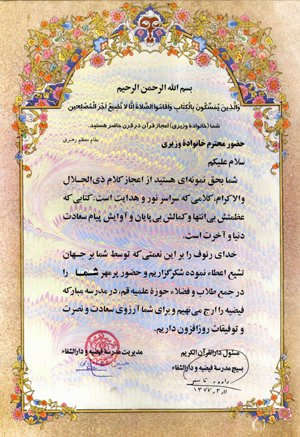 بسم الله الرحمن الرحیم
وَالَّذِینَ یُمَسِّکُونَ بِالْکِتَابِ وَأَقَامُوا الصَّلَاةَ إِنَّا لَا نُضِیعُ أَجْرَ الْمُصْلِحِینَ
شما (خانوادهٔ وزیری) اعجاز قرآن در قرن حاضر هستید.
مقام معظم رهبری
حضور محترم خانوادهٔ وزیری
سلام علیکم
شما بحق نمونه‌ای هستید از اعجاز کلام ذی‌الجلال
والاکرام، کلامی که سراسر نور و هدایت است. کتابی که
عظمتش بی انتها و کمالش بی پایان و آوایش پیام سعادت
دنیا و آخرت است.
خدای رئوف را بر این نعمتی که توسط شما بر جهان
تشیع اعطاء نموده شکرگزاریم و حضور پرمهر شما را
در جمع طلاب و فضلاء حوزهٔ علمیه قم، در مدرسه مبارکه
فیضیه را ارج می نهیم و برای شما آرزوی سعادت و نصرت
و توفیقات روزافزون داریم.
مسئول دارالقرآن الکریم
بسیج مدرسهٔ فیضیه و دارالشفاء
مدیریت مدرسهٔ فیضیه و دارالشفاء